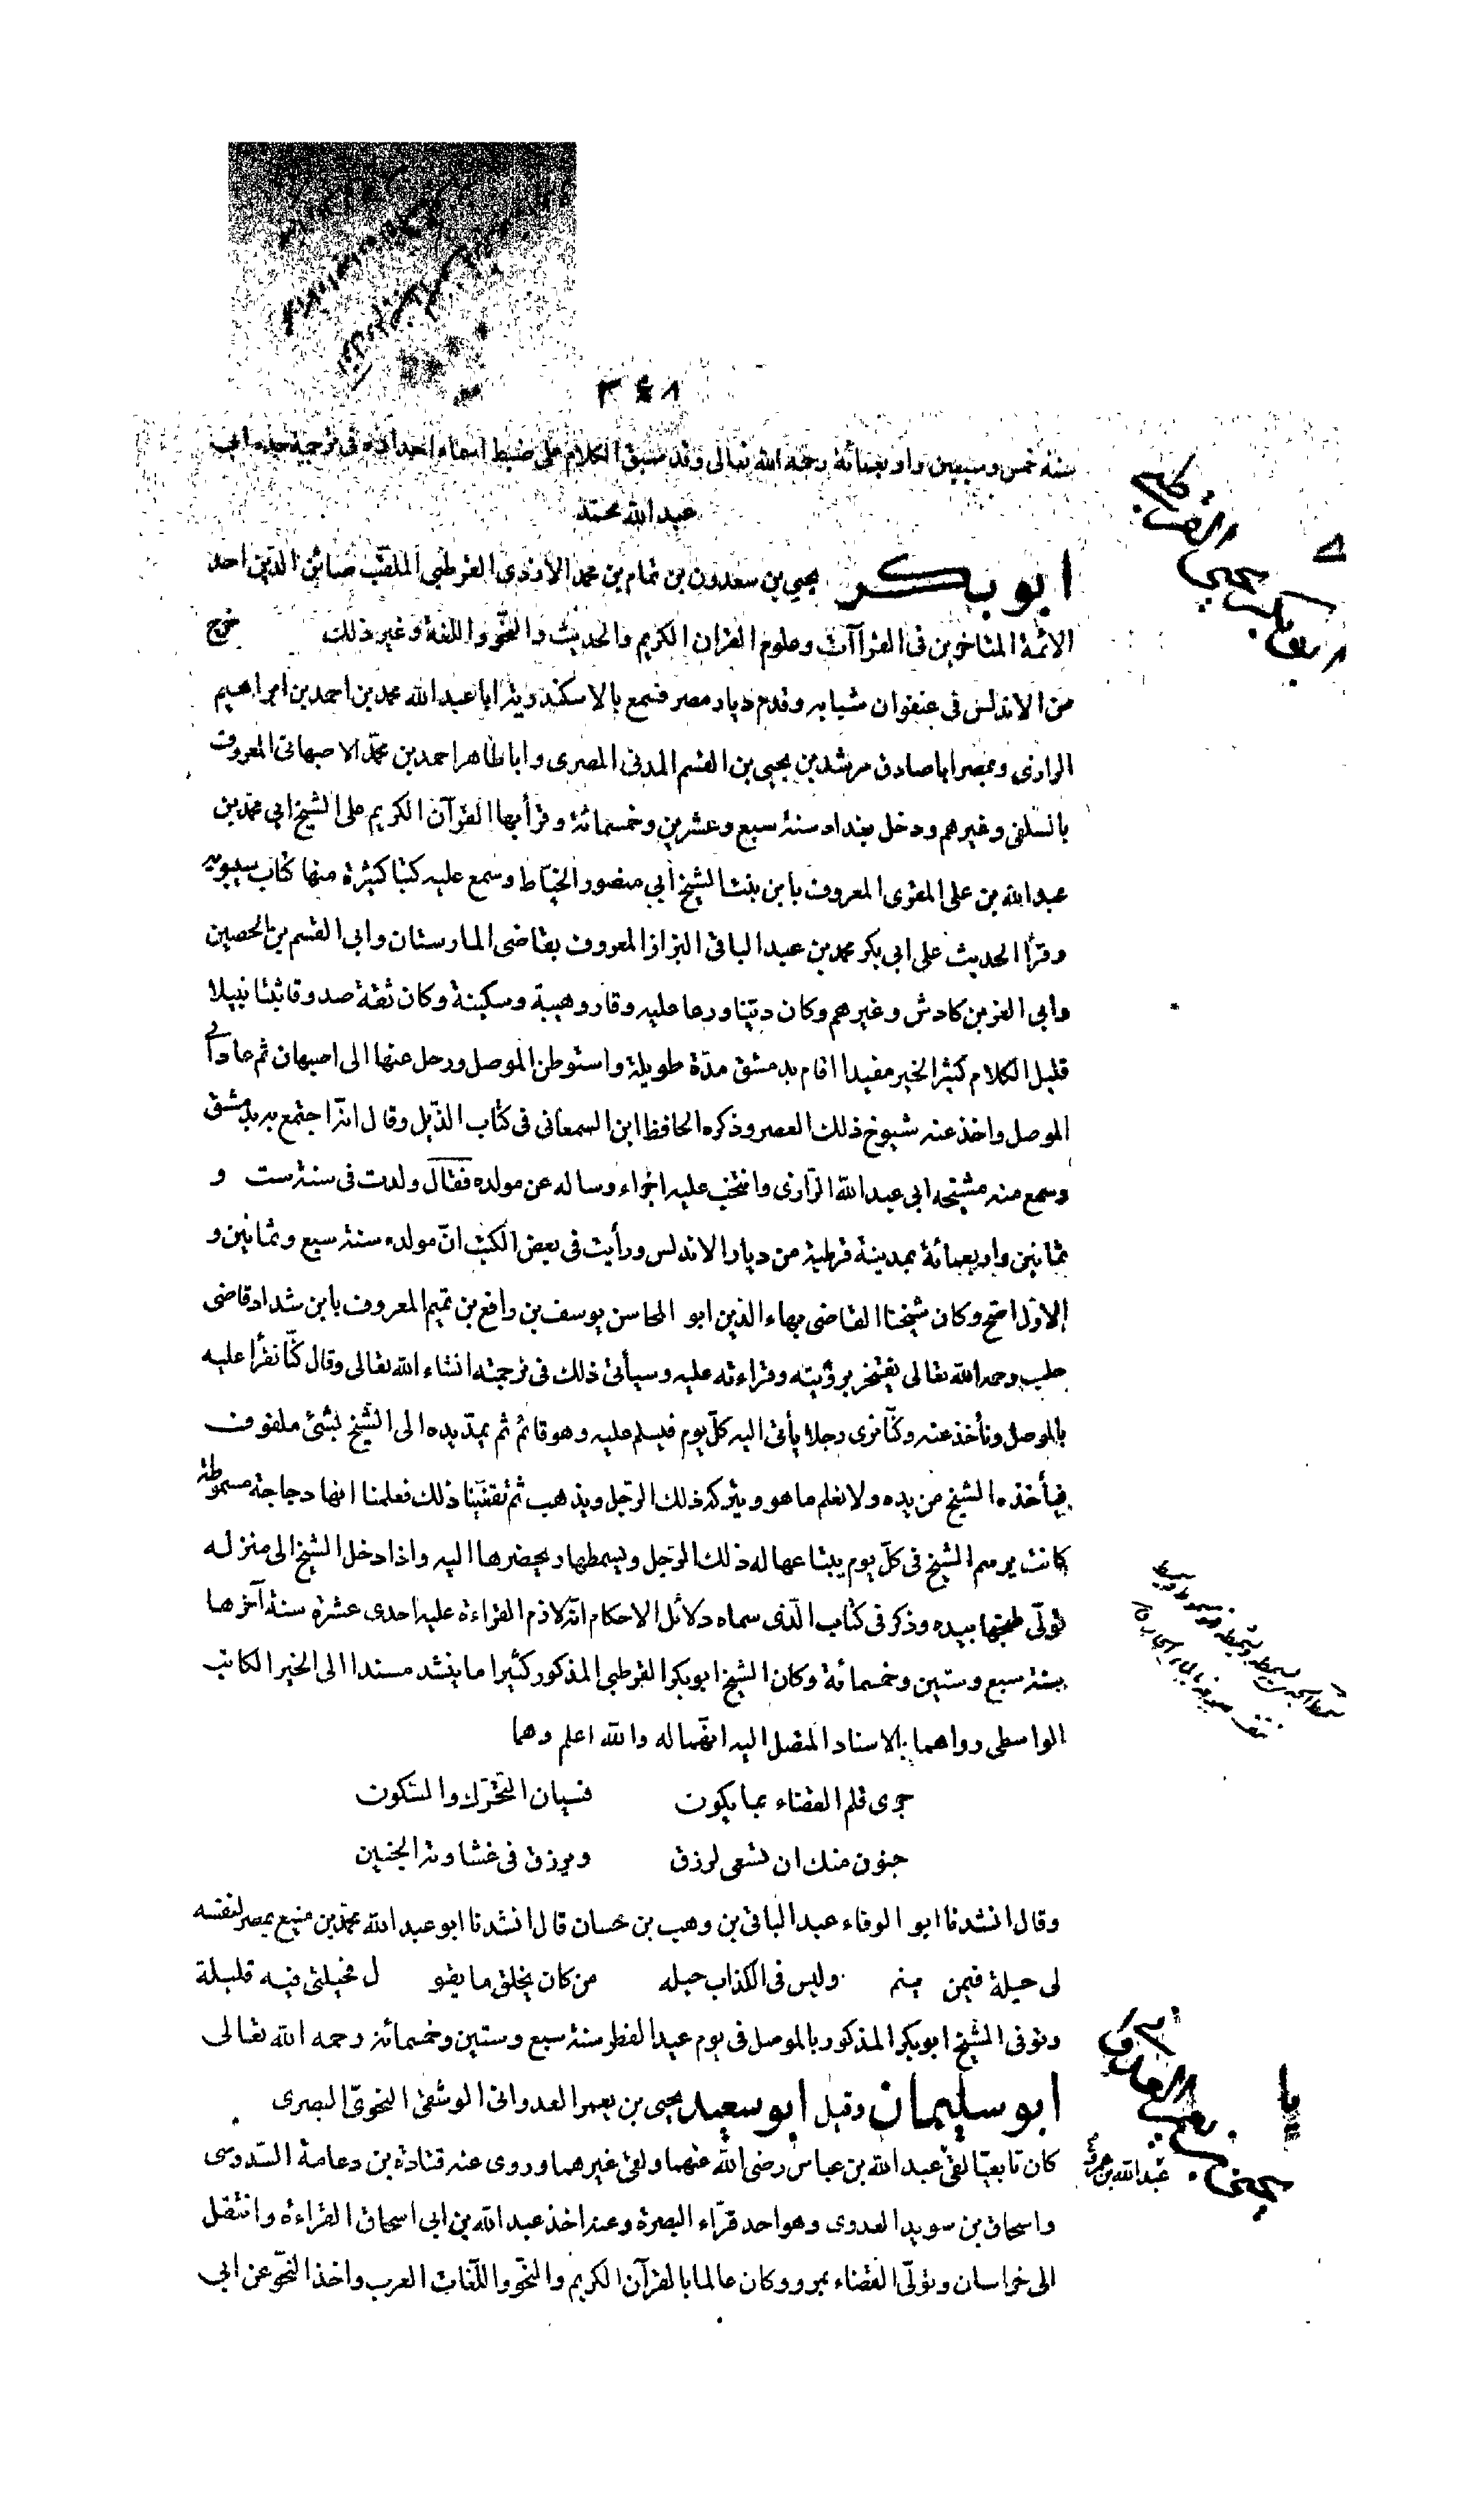 ٣٤٨
سنة خمس وسبعين واربعمائة رحمه الله تعالى وقد سبق الكلام على ضبط اسماء اجداده فى ترجمة جده ابى
عبد الله محمد
ابو بكر يحيى بن سعدون بن تمام بن محمد الازدى القرطبى الملقب صائن الدين احد
الائمة المتاخرين فى القراآت وعلوم القران الكريم والحديث والنحو واللغة وغير ذلك خرج
من الاندلس فى عنفوان شبابه وقدم ديار مصر فسمع بالاسكندرية ابا عبد الله محمد بن احمد بن ابراهيم
الرازى وبمصر ابا صادق مرشد بن يحيى بن القسم المدنى المصرى وابا طاهر احمد بن محمد الاصبهانى المعروف
بالسلفى وغيرهم ودخل بغداد سنة سبع وعشرين وخمسمائة وقرأ بها القرآن الكريم على الشيخ ابى محمد بن
عبد الله بن على المقرى المعروف بابن بنت الشيخ أبي منصور الخيّاط وسمع عليه كتبا كثيرة منها كتاب سيبويه
وقرأ الحديث على ابى بكر محمد بن عبد الباقى البزاز المعروف بقاضى المارستان وابى القسم بن الحصين
وابى العز بن كادش وغيرهم وكان ديّنا ورعا عليه وقار وهيبة وسكينة وكان ثقة صدوقا ثبتا نبيلا
قليل الكلام كثير الخير مفيدا اقام بدمشق مدّة طويلة واستوطن الموصل ورحل عنها الى اصبهان ثم عاد الى
الموصل واخذ عنه شيوخ ذلك العصر وذكره الحافظ ابن السمعانى فى كتاب الذّيل وقال انّه اجتمع به بدمشق
وسمع منه مشيخه ابى عبد الله الرّازى وانتخب عليه اجزاء وساله عن مولده فقال ولدت فى سنة ست و
ثمانين واربعمائة بمدينة قرطبة من ديار الاندلس ورأيت فى بعض الكتب انّ مولده سنة سبع وثمانين و
الاوّل اصح وكان شيخنا القاضى بهاء الدّين ابو المحاسن يوسف بن رافع بن تميم المعروف بابن شداد قاضى
حلب رحمه الله تعالى يفتخر برؤيته وقراءته عليه وسيأتى ذلك فى ترجمته انشاء الله تعالى وقال كنّا نقرأ عليه
بالموصل ونأخذ عنه وكنّا نرى رجلا يأتى اليه كلّ يوم فيسلم عليه وهو قائم ثم يمدّ يده الى الشّيخ بشئ ملفوف
فيأخذه الشيخ من يده ولا نعلم ما هو ويتركه ذلك الرّجل ويذهب ثم تقفّينا ذلك فعلمنا انها دجاجة مسموطة
كانت برسم الشيخ فى كلّ يوم يبتاعها له ذلك الرّجل ويسمطها ويحضرها اليه واذا دخل الشيخ الى منزله
تولّى طبخها بيده وذكر فى كتاب الّذى سماه دلائل الاحكام انّه لازم القراءة عليه احدى عشرة سنة آخرها
سنة سبع وستين وخمسمائة وكان الشيخ ابو بكر القرطبى المذكور كثيرا ما ينشد مسندا الى الخير الكاتب
الواسطى رواهما بالاسناد المتصل اليه انهما له والله اعلم وهما
جرى قلم القضاء بما يكون فسيان التحرّك والسّكون
جنون منك ان تسعى لرزق ويرزق فى غشاوته الجنين
وقال انشدنا ابو الوفاء عبد الباقى بن وهب بن حسان قال انشدنا ابو عبد الله محمّد بن منيع بمصر لنفسه
لى حيلة فيمن ينم وليس فى الكذاب حيله من كان يخلق ما يقو ل فحيلتى فيه قليلة
وتوفى الشيخ ابو بكر المذكور بالموصل فى يوم عيد الفطر سنة سبع وستين وخمسمائة رحمه الله تعالى
ابو سليمان وقيل ابو سعيد يحيى بن يعمر العدوانى الوشقى النحوىّ البصرى
كان تابعيّا لقى عبد الله بن عباس رضى الله عنهما ولقى غيرهما وروى عنه قتادة بن دعامة السّدوسى
عبد الله بن عمر و
واسحاق بن سويد العدوى وهو احد قرّاء البصرة وعنه اخذ عبد الله بن ابى اسحاق القراءة وانتقل
الى خراسان وتولّى القضاء بمرو وكان عالما بالقرآن الكريم والنحّو واللّغات العرب واخذ النّحو عن ابى